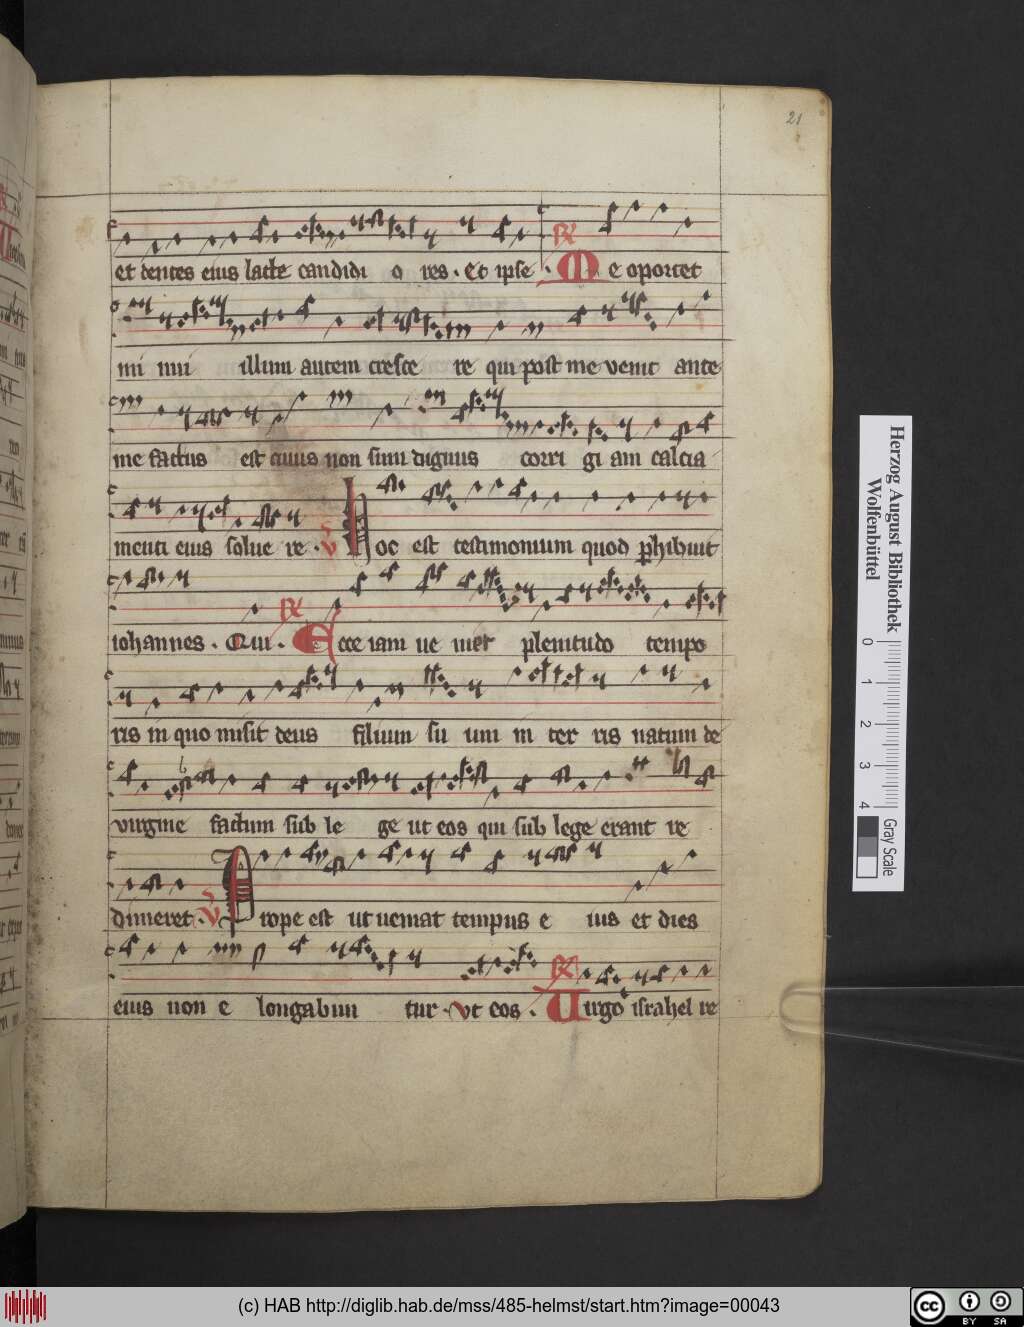 21
et dentes eius lacte candidi o res · Et ipse · ℟ Me oportet
mi nui illum autem cresce re qui post me venit ante
me factus est cuius non sum dignus corri gi am calcia
menti eius solue re · V Hoc est testimonium quod phibuit
iohannes · Qui · ℟ Ecce iam ue nit plenitudo tempo
ris in quo misit deus filium su um in ter ris natum de
virgine factum sub le ge ut eos qui sub lege erant re
dimeret · V Prope est ut ueniat tempus e ius et dies
eius non e longabun tur · Vt eos · ℟ Uirgo israhel re
Herzog August Bibliothek
Wolfenbüttel
0 1 2 3 4
Gray Scale
(c) HAB http://diglib.hab.de/mss/485-helmst/start.htm?image=00043
cc BY SA